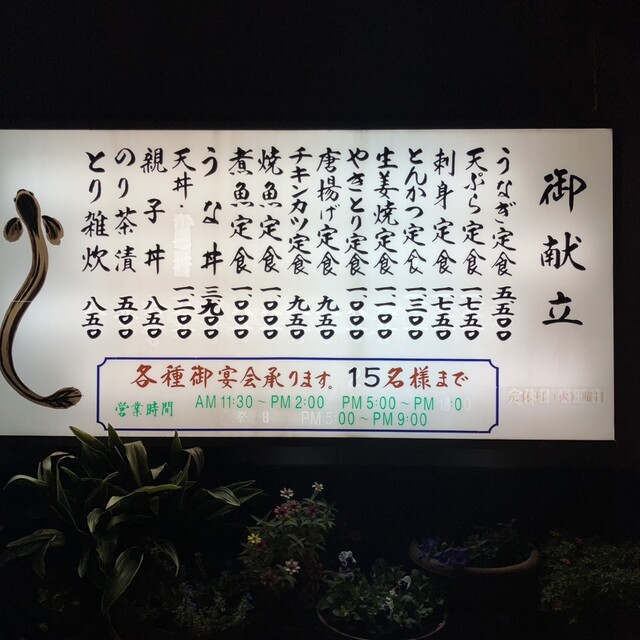 御献立
うなぎ定食 五五〇〇
天ぷら定食 一七五〇
刺身定食 一七五〇
とんかつ定食 一三〇〇
生姜焼定食 一一〇〇
やきとり定食 一、〇〇〇
唐揚げ定食 九五〇
チキンカツ定食 九五〇
焼魚定食 一、〇〇〇
煮魚定食 一、〇〇〇
うな丼 三九〇〇
天丼 一二〇〇
親子丼 八五〇
のり茶漬 五〇〇
とり雑炊 八五〇
各種御宴会承ります。15名様まで
営業時間 AM 11:30~PM 2:00 PM 5:00~PM
PM 5:00~PM 9:00
定休日(火)曜日